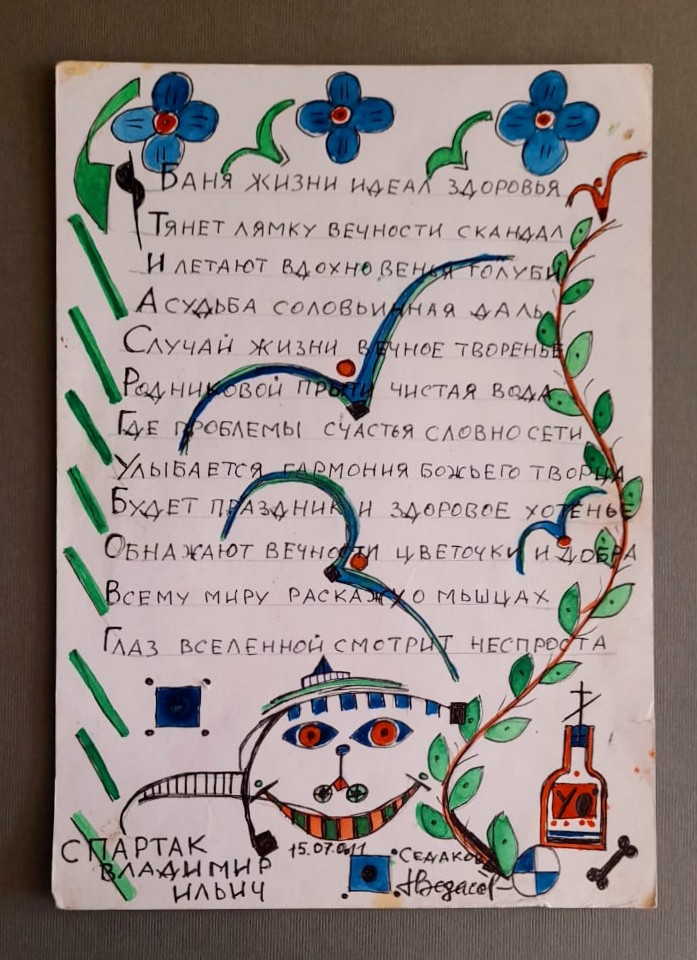 БАНЯ ЖИЗНИ ИДЕАЛ ЗДОРОВЬЯ
ТЯНЕТ ЛЯМКУ ВЕЧНОСТИ СКАНДАЛ
И ЛЕТАЮТ ВДОХНОВЕНЬЯ ГОЛУБИ
А СУДЬБА СОЛОВЬИННАЯ ДАЛЬ
СЛУЧАЙ ЖИЗНИ ВЕЧНОЕ ТВОРЕНЬЕ
РОДНИКОВОЙ ПРЫТИ ЧИСТАЯ ВОДА
ГДЕ ПРОБЛЕМЫ СЧАСТЬЯ СЛОВНО СЕТИ
УЛЫБАЕТСЯ ГАРМОНИЯ БОЖЬЕГО ТВОРЦА
БУДЕТ ПРАЗДНИК И ЗДОРОВОЕ ХОТЕНЬЕ
ОБНАЖАЮТ ВЕЧНОСТИ ЦВЕТОЧКИ И ДОБРА
ВСЕМУ МИРУ РАСКАЖУ О МЫШЦАХ
ГЛАЗ ВСЕЛЕННОЙ СМОТРИТ НЕСПРОСТА
УО
СПАРТАК
ВЛАДИМИР
ИЛЬИЧ
15.07.011
СЕДАКОВ